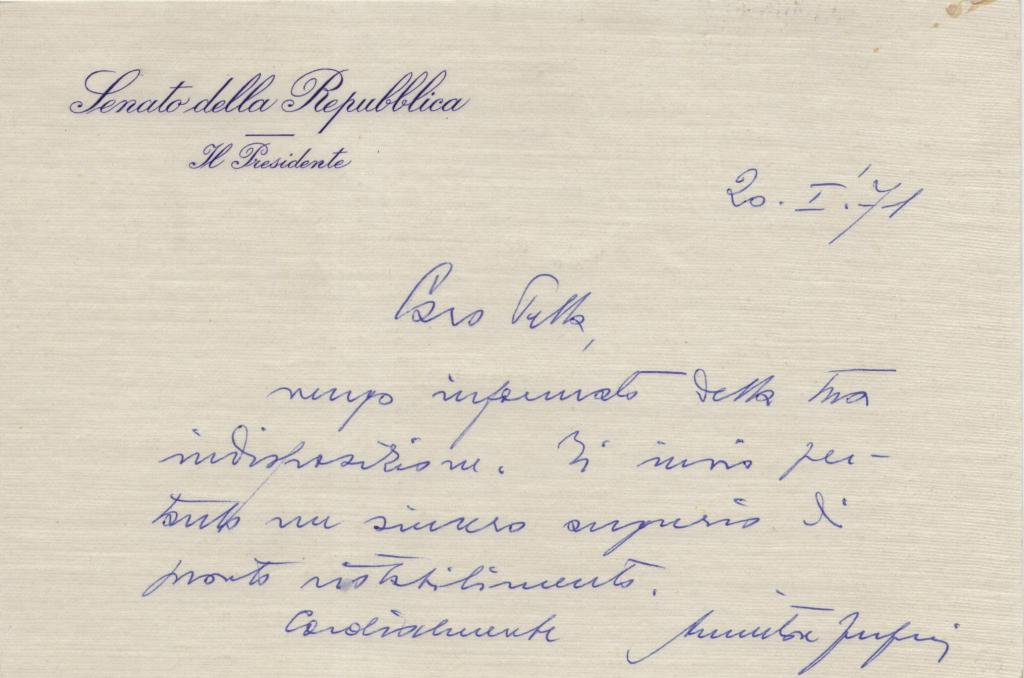 Senato della Repubblica
Il Presidente
20. I. '71
Caro Pella,
vengo informato della tua
indisposizione. Ti invio per-
tanto un sincero augurio di
pronto ristabilimento.
Cordialmente Amintore Fanfani